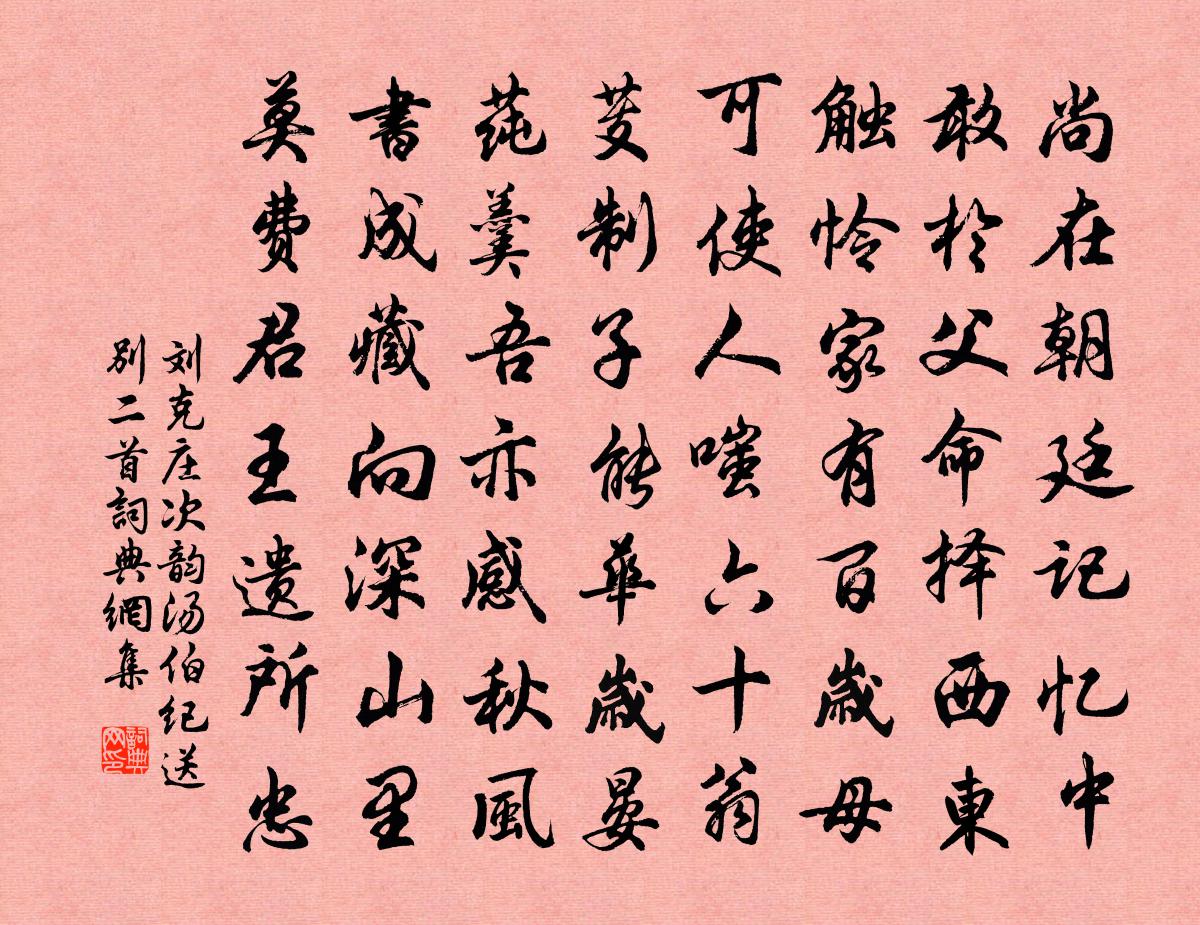 尚在朝廷记忆中
敢於父命择西東
触怜家有百歲母
可使人嗤六十翁
芰制子能華歲晏
莼羹吾亦感秋風
書成藏向深山里
莫費君王遗所忠
刘克庄次韵汤伯纪送
别二首詞典網集
詞典
网印